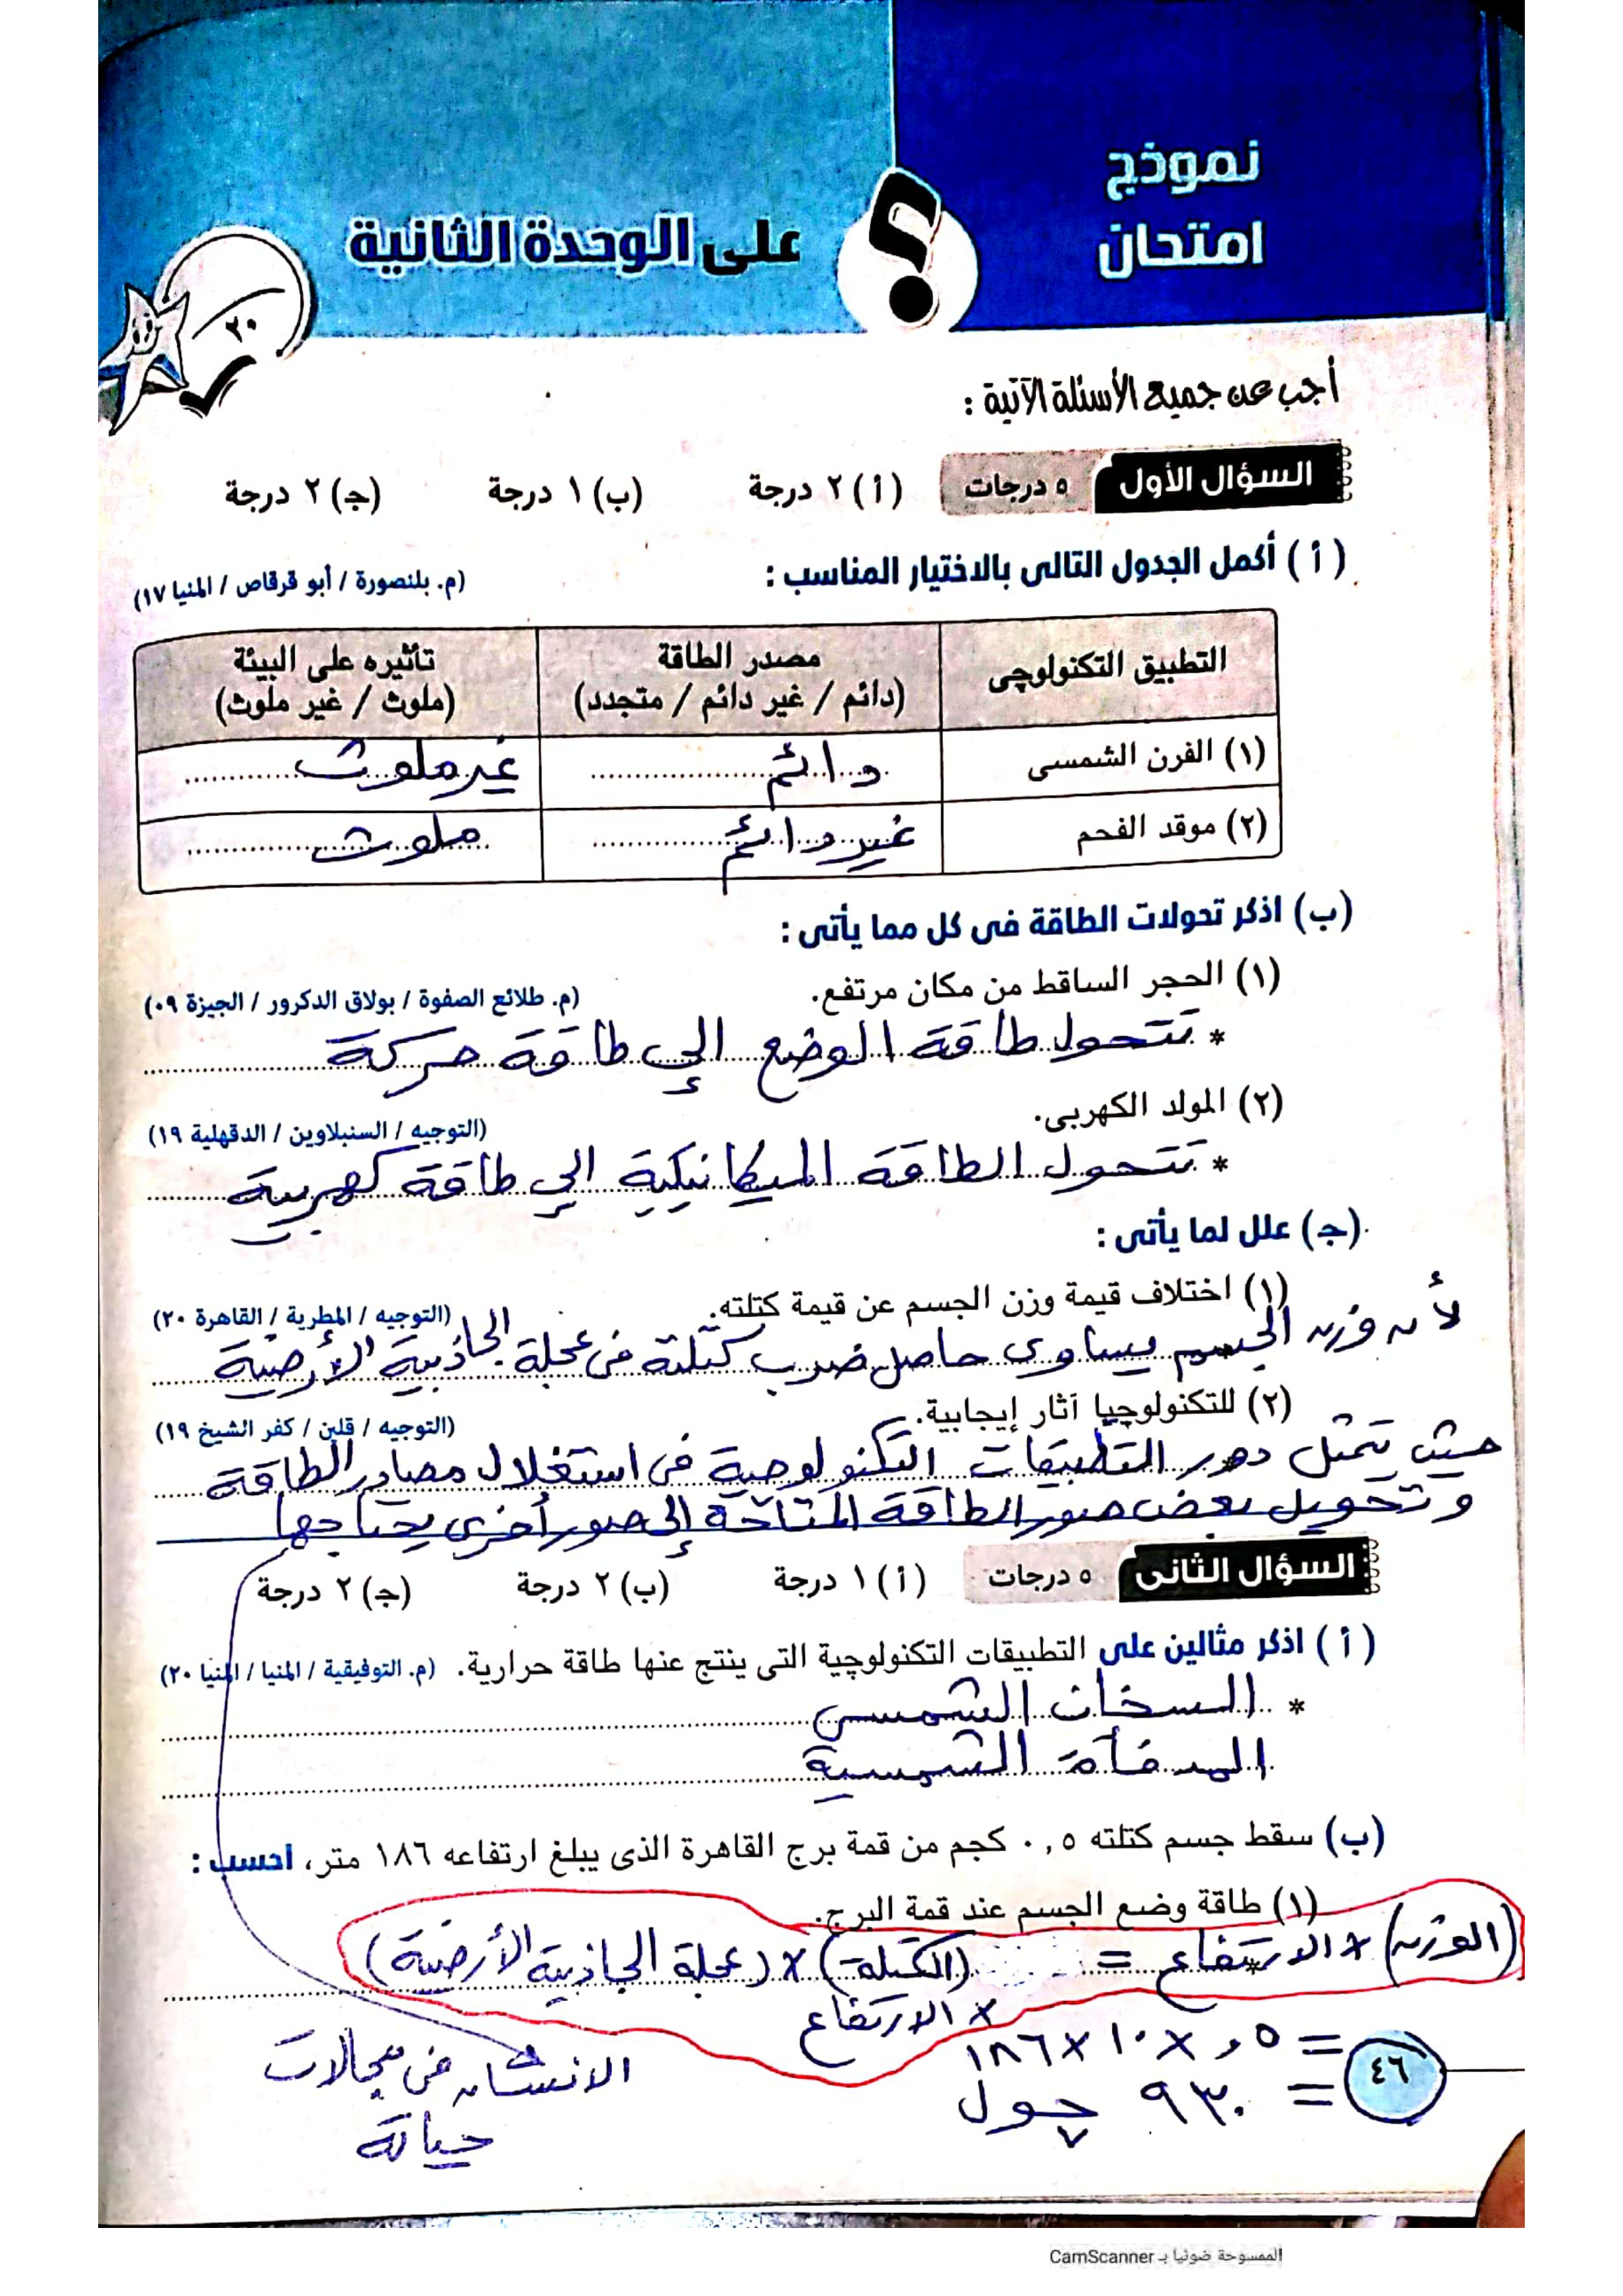 نموذج
امتحان
؟
على الوحدة الثانية
٢٠
أجب عن جميع الأسئلة الآتية :
السؤال الأول ٥ درجات (أ) ٢ درجة (ب) ١ درجة (جـ) ٢ درجة
(أ) أكمل الجدول التالى بالاختيار المناسب : (م. بلنصورة / أبو قرقاص / المنيا ١٧)
التطبيق التكنولوچى مصدر الطاقة (دائم / غير دائم / متجدد) تأثيره على البيئة (ملوث / غير ملوث)
(١) الفرن الشمسى دائم غير ملوث
(٢) موقد الفحم غير دائم ملوث
(ب) اذكر تحولات الطاقة فى كل مما يأتى :
(١) الحجر الساقط من مكان مرتفع. (م. طلائع الصفوة / بولاق الدكرور / الجيزة ٠٩)
* تتحول طاقة الوضع إلى طاقة حركة
(٢) المولد الكهربى. (التوجيه / السنبلاوين / الدقهلية ١٩)
* تتحول الطاقة الميكانيكية الى طاقة كهربية
(جـ) علل لما يأتى :
(١) اختلاف قيمة وزن الجسم عن قيمة كتلته. (التوجيه / المطرية / القاهرة ٢٠)
لأن وزن الجسم يساوى حاصل ضرب كتلته فى عجلة الجاذبية الأرضية
(٢) للتكنولوچيا آثار إيجابية. (التوجيه / قلين / كفر الشيخ ١٩)
حيث يتمثل دور التطبيقات التكنولوجية فى استغلال مصادر الطاقة
وتحويل بعض صور الطاقة المتاحة إلى صور أخرى يحتاجها
السؤال الثانى ٥ درجات (أ) ١ درجة (ب) ٢ درجة (جـ) ٢ درجة
(أ) اذكر مثالين على التطبيقات التكنولوچية التى ينتج عنها طاقة حرارية. (م. التوفيقية / المنيا / المنيا ٢٠)
* السخان الشمسى
المدفأة الشمسية
(ب) سقط جسم كتلته ٠,٥ كجم من قمة برج القاهرة الذى يبلغ ارتفاعه ١٨٦ متر، احسب :
(١) طاقة وضع الجسم عند قمة البرج.
(الوزن) × الارتفاع = (الكتلة) × (عجلة الجاذبية الأرضية)
× الارتفاع
= ٠,٥ × ١٠ × ١٨٦
= ٩٣٠ چول
الانسان فى مجالات
حياته
٤٦
الممسوحة ضوئيا بـ CamScanner